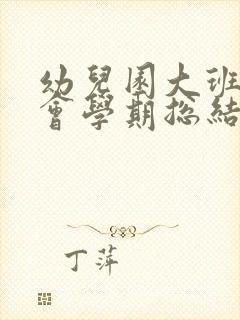 幼兒園大班
會學期總結
丁萍